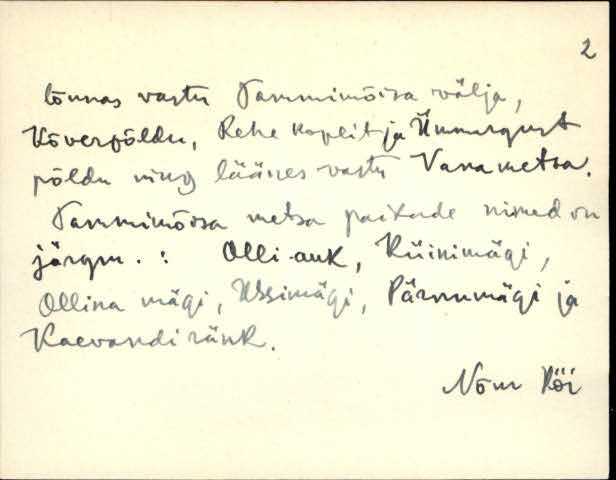 2
lõunas vastu Tammimõisa välja,
Kõverpõldu, Rehe koplit ja
põldu ning läänes vastu Vanametsa.
Tammimõisa metsa paikade nimed on
järgm.: Olli-auk, Küinimägi,
Ollina mägi, Ussimägi, Pärnumägi ja
Kaevandi ränk.
Nõm